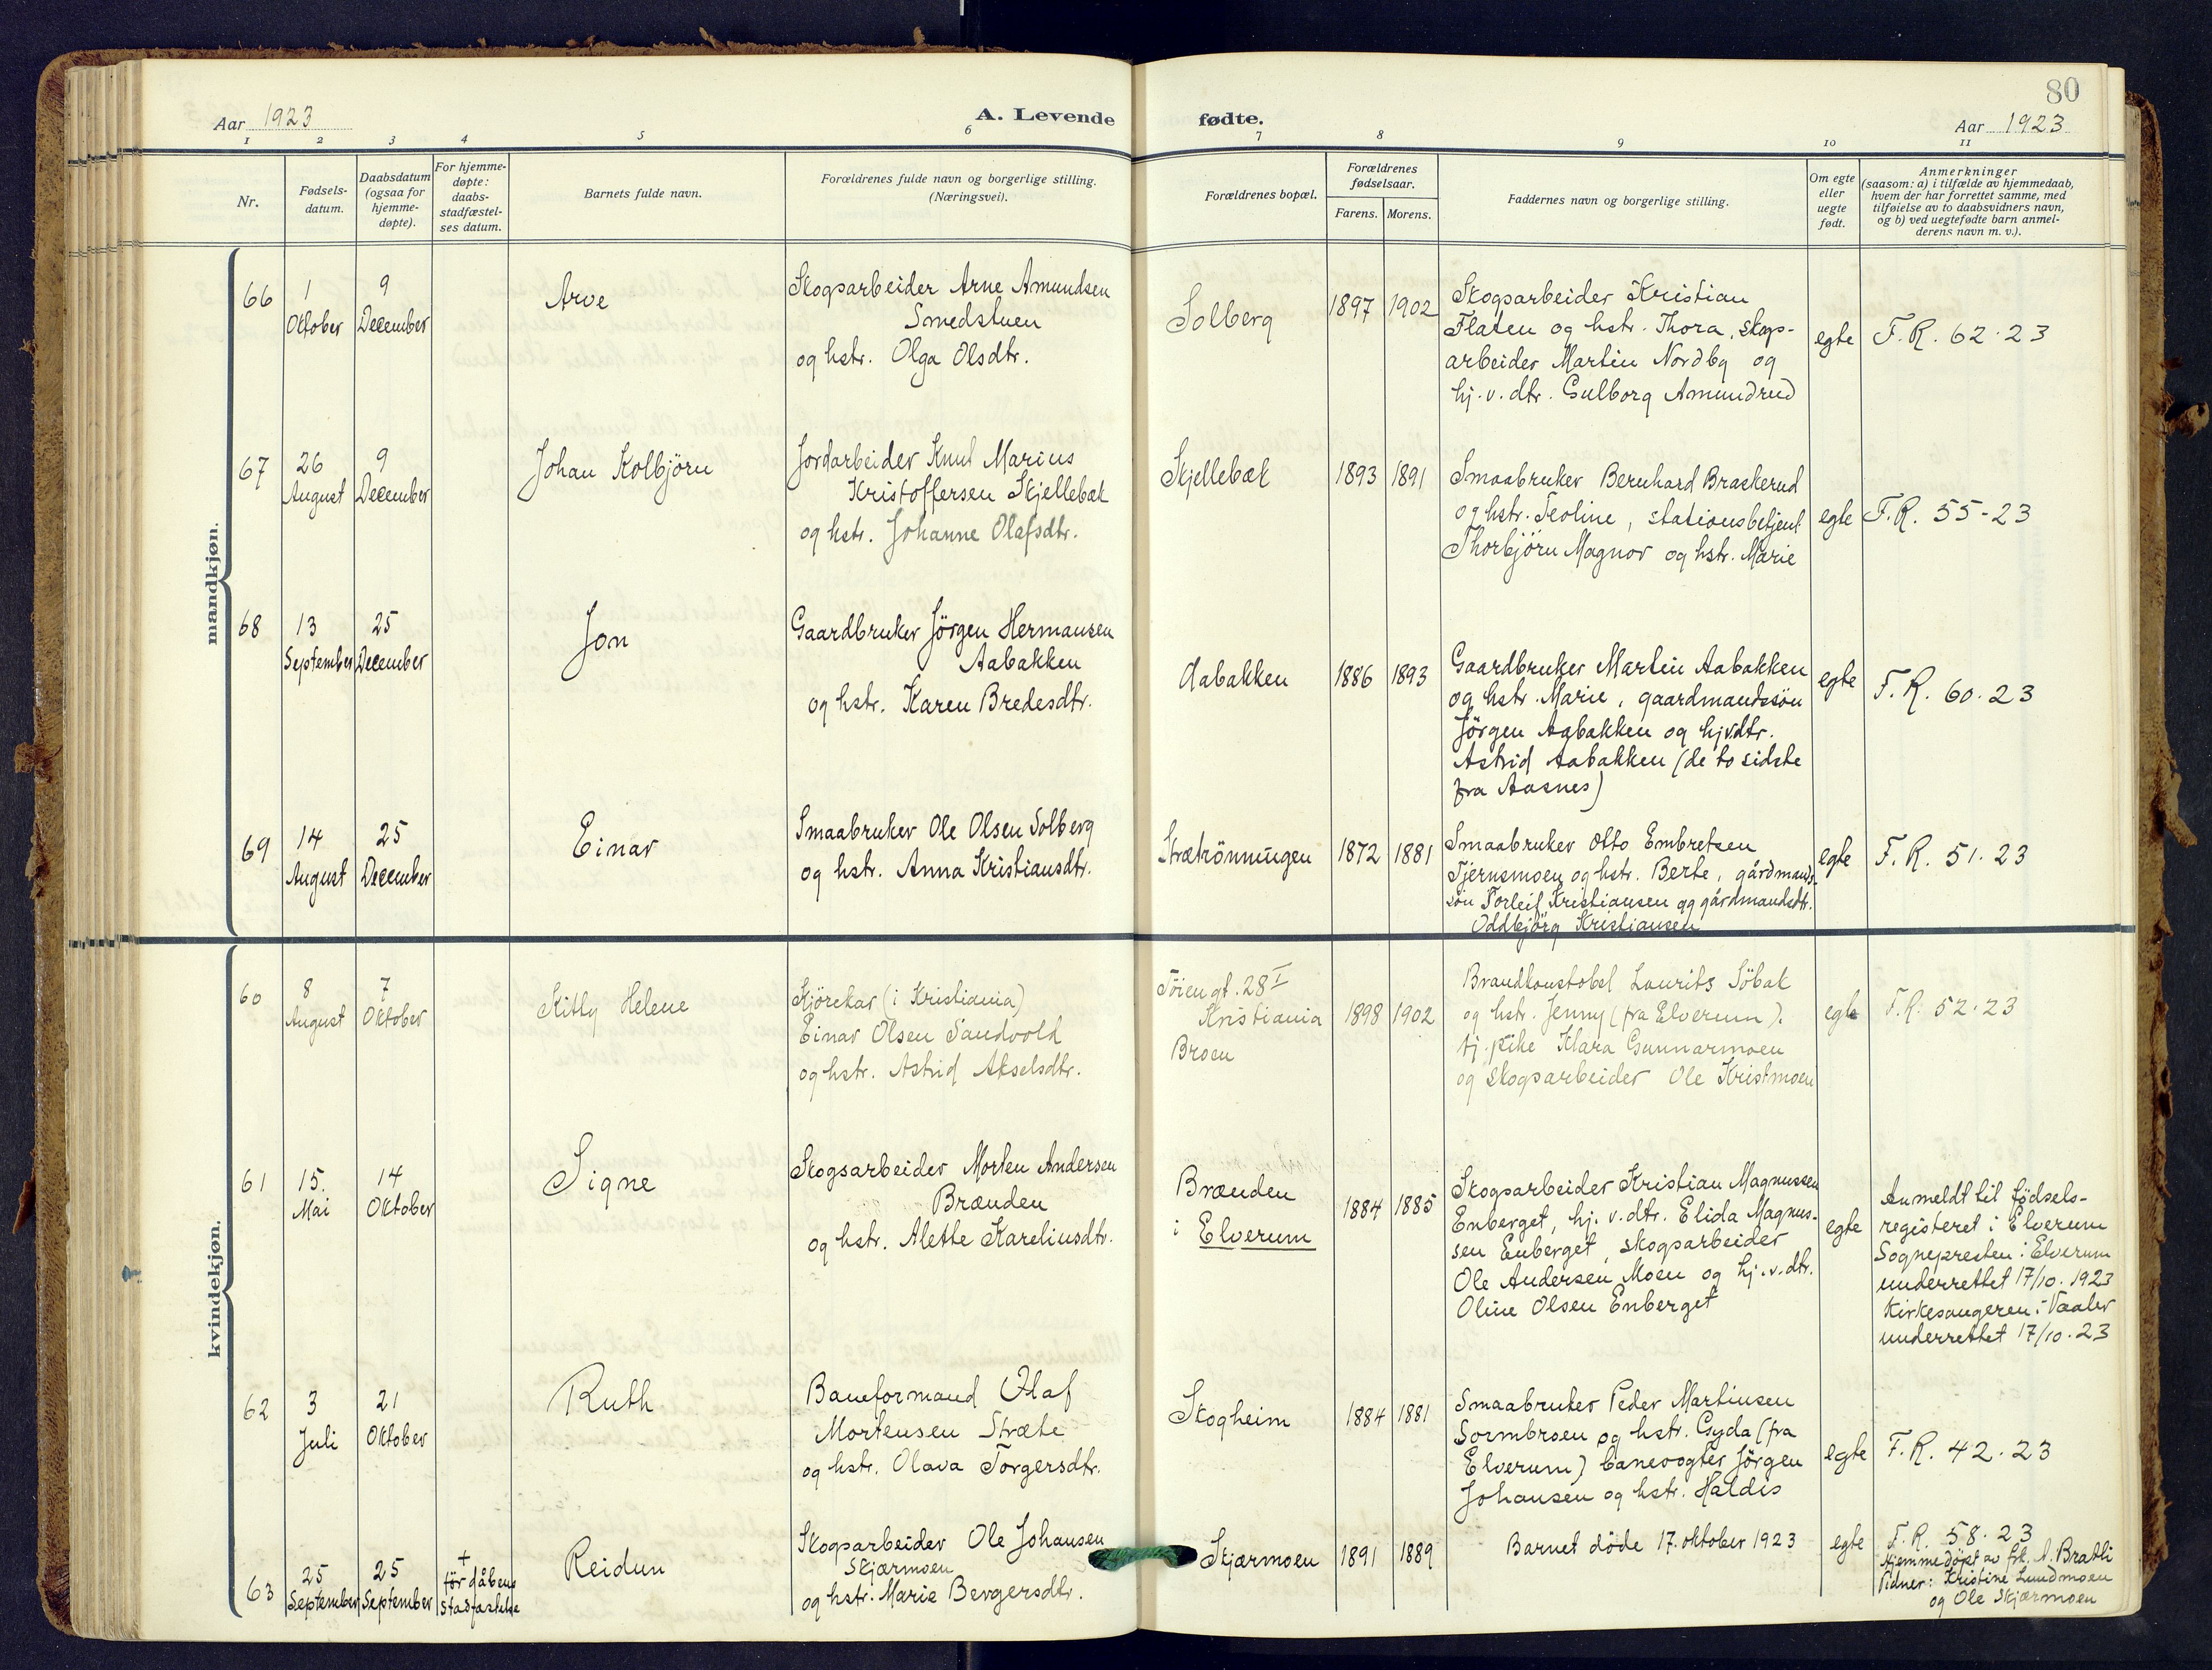 80
Aar 1923
A. Levende
fødte.
Aar 1923
1 2 3 4 5 6 7 8 9 10 11
Nr.
Fødsels-
datum.
Daabsdatum
(ogsaa for
hjemme-
døpte).
For hjemme-
døpte:
daabs-
stadfæstel-
ses datum.
Barnets fulde navn.
Forældrenes fulde navn og borgerlige stilling.
(Næringsvei).
Forældrenes bopæl.
Forældrenes
fødselsaar.
Farens. Morens.
Faddernes navn og borgerlige stilling.
Om egte
eller
uegte
født.
Anmerkninger
(saasom: a) i tilfælde av hjemmedaab,
hvem der har forrettet samme, med
tilføielse av to daabsvidners navn,
og b) ved uegtefødte barn anmel-
derens navn m. v.).
mandkjøn.
66
1
Oktober
9
December
Arve
Skogsarbeider Arne Amundsen
Smedstuen
og hstr. Olga Olsdtr.
Solberg
1897 1902
Skogsarbeider Kristian
Flaten og hstr. Thora, skogs-
arbeider Martin Nordby og
hj. v. dtr. Gulborg Amundrud
egte
F. R. 62. 23
67
26
August
9
December
Johan Kolbjörn
Jordarbeider Knut Marius
Kristoffersen Skjellebæk
og hstr. Johanne Olafsdtr.
Skjellebæk
1893 1891
Smaabruker Bernhard Braskerud
og hstr. Teoline, stationsbetjent
Thorbjörn Magnor og hstr. Marie
egte
F. R. 55-23
68
13
September
25
December
Jon
Gaardbruker Jörgen Hermansen
Aabakken
og hstr. Karen Bredesdtr.
Aabakken
1886 1893
Gaardbruker Martin Aabakken
og hstr. Marie, gaardmandssön
Jörgen Aabakken og hjvdtr.
Astrid Aabakken (de to sidste
fra Aasnes)
egte
F. R. 60. 23
69
14
August
25
December
Einar
Smaabruker Ole Olsen Solberg
og hstr. Anna Kristiansdtr.
Strætrönningen
1872 1881
Smaabruker Otto Embretsen
Tjernsmoen og hstr. Berte, gårdmands-
sön Torleif Kristiansen og gårdmandsdtr.
Oddbjörg Kristiansen
egte
F. R. 51. 23
kvindekjøn.
60
8
August
7
Oktober
Kitty Helene
Kjörekar (i Kristiania)
Einar Olsen Sandvold
og hstr. Astrid Akselsdtr.
Töiengt. 28 I
Kristiania
Broen
1898 1902
Brandkonstabel Laurits Söbak
og hstr. Jenny (fra Elverum).
tj. pike Klara Gunnarmoen
og skogsarbeider Ole Kristmoen
egte
F. R. 52. 23
61
15.
Mai
14
Oktober
Signe
Skogsarbeider Morten Andersen
Brænden
og hstr. Alette Kareliusdtr.
Brænden
i Elverum
1884 1885
Skogsarbeider Kristian Magnussen
Enberget, hj. v. dtr. Elida Magnus-
sen Enberget, skogsarbeider
Ole Andersen Moen og hj. v. dtr.
Oline Olsen Enberget
egte
Anmeldt til födsels-
registeret i Elverum
Sognepresten i Elverum
underrettet 17/10. 1923
Kirkesangeren i Vaaler
underrettet 17/10. 23
62
3
Juli
21
Oktober
Ruth
Baneformand Olaf
Mortensen Stræte
og hstr. Olava Torgersdtr.
Skogheim
1884 1881
Smaabruker Peder Martinsen
Sormbroen og hstr. Gyda (fra
Elverum) banevogter Jörgen
Johansen og hstr. Haldis
egte
F. R. 42. 23
63
25
September
25
September
+
för dåbens
stadfæstelse
Reidun
Skogsarbeider Ole Johansen
Skjærmoen
og hstr. Marie Bergersdtr.
Skjærmoen
1891 1889
Barnet döde 17. oktober 1923
egte
F. R. 58. 23
Hjemmedöpt av frk. A. Bratli
Vidner: Kristine Lundmoen
og Ole Skjærmoen